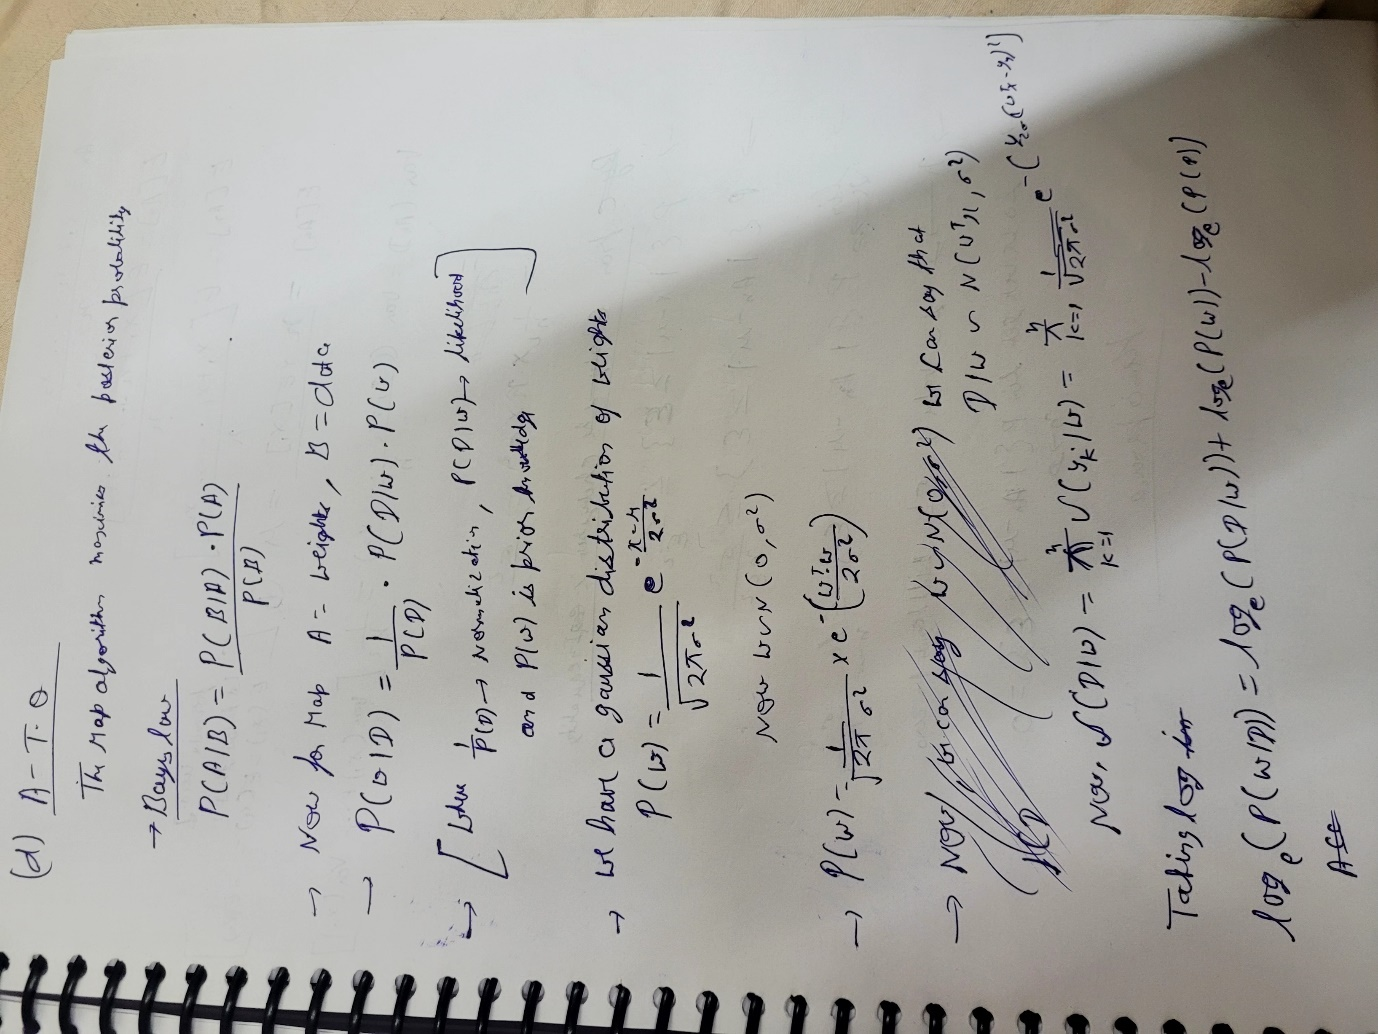 (d) A-T.Q
The Map algorithm maximies the posterior probability
→ Bays law
P(A|B) = P(B|A) . P(A) / P(B)
→ Now for Map A = weights, B = data
→ P(w|D) = 1/P(D) . P(D|w) . P(w)
→ [ when 1/P(D) → Normalization, P(D|w) → likelihood
and P(w) is prior knowledge ]
→ we have a gaussian distribution of weights
P(w) = 1/√2πσ² e^-x-μ/2σ²
Now w ~ N(0, σ²)
→ P(w) = 1/√2π σ² × e^-(wᵀw/2σ²)
→ Now, we can say w ~ N(0, σ²) we can say that
D|w ~ N(wᵀx, σ²)
Now, (D|w) = π k=1 (yk|w) = n π k=1 1/√2πσ² e^-(1/2σ (wᵀx - y)²)
Taking log
logₑ(P(w|D)) = logₑ(P(D|w)) + logₑ(P(w)) - logₑ(P(D))